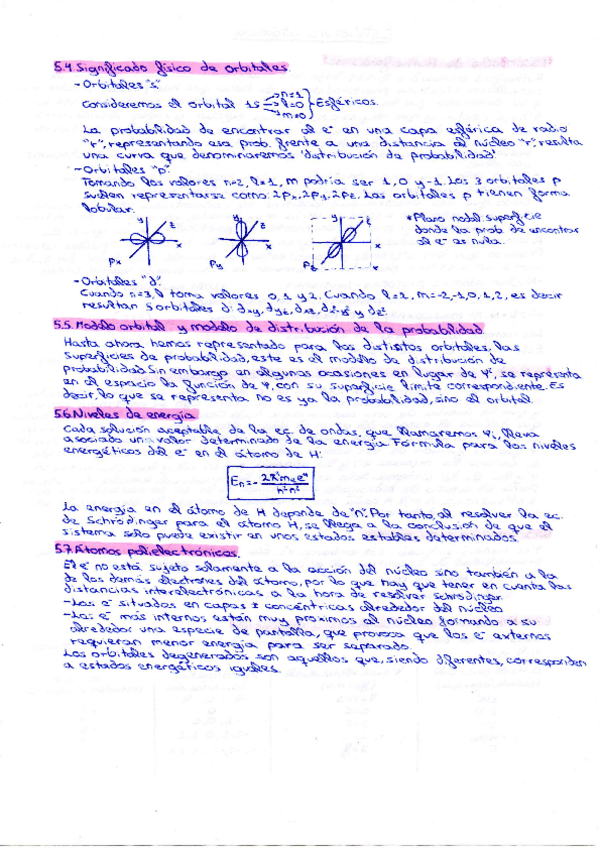 5.4. Significado físico de orbitales.
- Orbitales "s".
Consideremos el orbital 1s n=1 l=0 m=0 Esféricos.
La probabilidad de encontrar al e⁻ en una capa esférica de radio
"r", representando esa prob. frente a una distancia al núcleo "r", resulta
una curva que denominaremos 'distribución de probabilidad'
- Orbitales "p".
Tomando los valores n=2, l=1, m podría ser 1, 0 y -1. Los 3 orbitales p
suelen representarse como: 2px, 2py, 2pz. Los orbitales p tienen forma
lobular.
y z x Px
y z x Py
y z x Pz
* Plano nodal: superficie
donde la prob. de encontrar
al e⁻ es nula.
- Orbitales "d".
Cuando n=3, l toma valores 0, 1 y 2. Cuando l=2, m=-2,-1,0,1,2, es decir
resultan 5 orbitales d: dxy, dyz, dxz, dx²-y² y dz².
5.5. Modelo orbital y modelo de distribución de la probabilidad.
Hasta ahora hemos representado para los distintos orbitales, las
superficies de probabilidad, este es el modelo de distribución de
probabilidad. Sin embargo en algunas ocasiones en lugar de Ψ², se representa
en el espacio la función de Ψ, con su superficie límite correspondiente. Es
decir, lo que se representa no es ya la probabilidad, sino el orbital.
5.6. Niveles de energía
Cada solución aceptable de la ec. de ondas, que llamaremos Ψi, lleva
asociado un valor determinado de la energía. Fórmula para los niveles
energéticos del e⁻ en el átomo de H:
En = - 2π²mee⁴ / h²n²
La energía en el átomo de H depende de "n". Por tanto, al resolver la ec.
de Schrödinger para el átomo H, se llega a la conclusión de que el
sistema solo puede existir en unos estados estables determinados.
5.7. Átomos polielectrónicos.
El e⁻ no está sujeto solamente a la acción del núcleo sino también a la
de los demás electrones del átomo, por lo que hay que tener en cuenta las
distancias interelectrónicas a la hora de resolver Schrödinger.
- Los e⁻ situados en capas ± concéntricas alrededor del núcleo
- Los e⁻ más internos están muy próximos al núcleo formando a su
alrededor una especie de pantalla, que provoca que los e⁻ externos
requieran menor energía para ser separado.
Los orbitales degenerados son aquellos que, siendo diferentes, corresponden
a estados energéticos iguales.